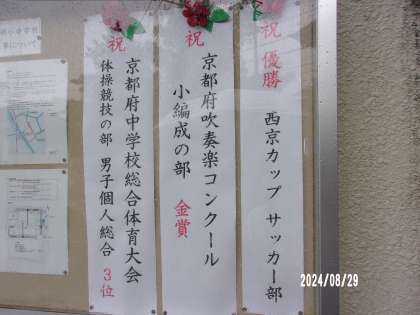 祝 優勝
西京カップ サッカー部
祝
京都府吹奏楽コンクール
小編成の部 金賞
祝
京都府中学校総合体育大会
体操競技の部 男子個人総合 3位
2024/08/29